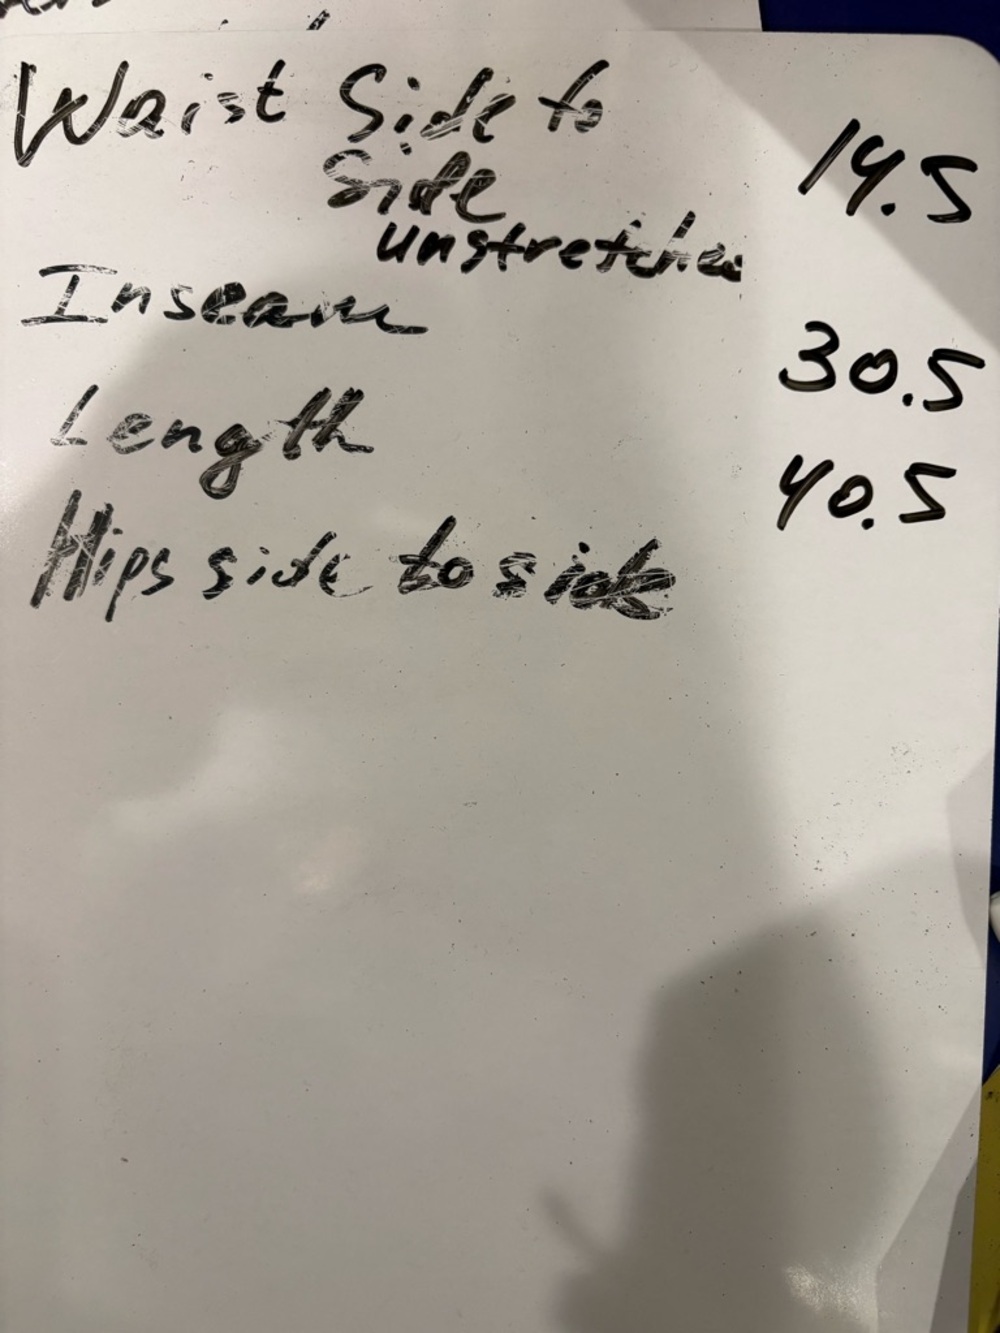 Waist Side to
Side 14.5
unstretched
Inseam 30.5
Length 40.5
Hips side to side